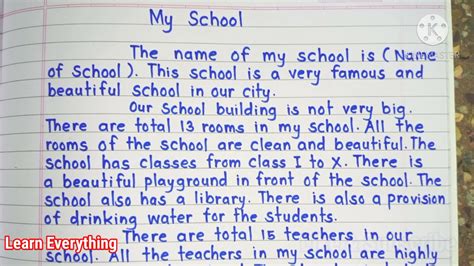 My School
The name of my school is (Name
of School). This school is a very famous and
beautiful school in our city.
Our School building is not very big.
There are total 13 rooms in my school. All the
rooms of the school are clean and beautiful. The
school has classes from class I to X. There is
a beautiful playground in front of the school. The
school also has a library. There is also a provision
of drinking water for the students.
There are total 15 teachers in our
school. All the teachers in my school are highly
Learn Everything